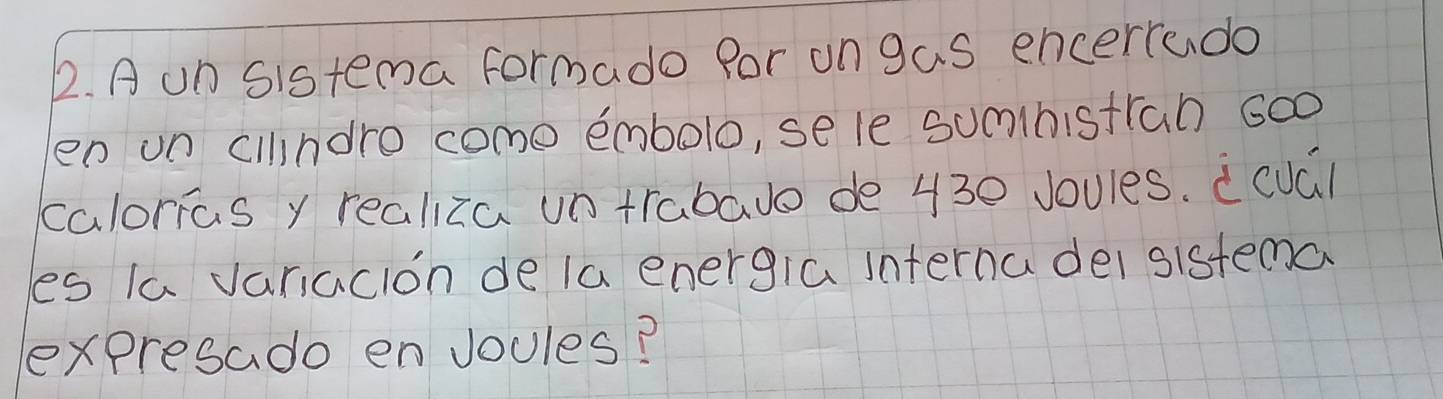 2. A un sistema formado Por un gas encerrado
en un cilindro como émbolo, se le suministran 600
calorías y realiza un trabajo de 430 Joules. ¿cuál
es la variación de la energia interna del sistema
expresado en Joules?